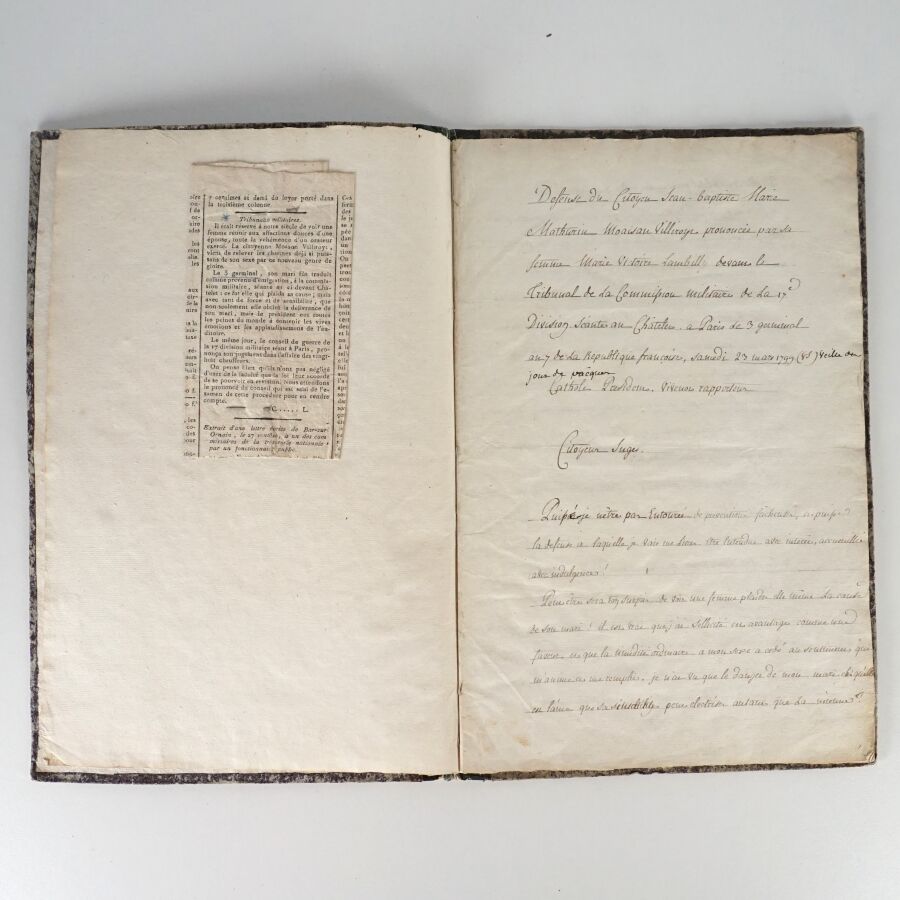 7 centimes et demi du loyer porté dans
la troisième colonne.
Tribunaux militaires.
Il était réservé à notre siècle de voir une
femme réunir aux affections douces d'une
épouse, toute la véhémence d'un orateur
exercé. La citoyenne Moisan Villiroy,
vient de relever les charmes déjà si puis-
sans de son sexe par ce nouveau genre de
gloire.
Le 3 germinal, son mari fut traduit
comme prévenu d'émigration, à la commission
militaire, séante au ci-devant Châ-
telet : ce fut elle qui plaida sa cause; mais
avec tant de force et de sensibilité, que
non-seulement elle obtint la délivrance de
son mari, mais le président eut toutes
les peines du monde à contenir les vives
émotions et les applaudissemens de l'au-
ditoire.
Le même jour, le conseil de guerre de
la 17 division militaire séant à Paris, pro-
nonça son jugement dans l'affaire des vingt-
huit chauffeurs.
On pense bien qu'ils n'ont pas négligé
d'user de la faculté que la loi leur accorde
de se pourvoir en révision. Nous attendrons
le prononcé du conseil qui est saisi de l'e-
xamen de cette procédure pour en rendre
compte.
C..... L
Extrait d'une lettre écrite de Bar-sur-
Ornain, le 27 ventôse, à un des com-
missaires de la trésorerie nationale,
par un fonctionnaire public.
Defense du Citoyen Jean-baptiste Marie
Mathurin Moaisan Villiroye prononcée par sa
femme Marie Victoire Lambelle devant le
Tribunal de La Commission militaire de La 17e
Division, Séante au Châtelet a Paris le 3 germinal
an 7 de La République francoise, samedi 23 mars 1799 (VS) veille du
jour de pacques
Cathole President, Viveux rapporteur
Citoyens Juges.
Puissé-je n'être pas Entourée de préventions facheuses, et puisse
la defense a laquelle je vais me livrer être Entendue avec interêt, accueillie
avec indulgence!
Peut être sera t'on surpris de voir une femme plaider elle même La cause
de son mari! il est vrai que j'ai sollicité cet avantage comme une
faveur et que la timidité ordinaire a mon sexe a cédé au sentiment que
m'anime et me remplis. je n'ai vu que le danger de mon mari
en l'aime que sa sensibilité peut electriser autant que La mienne?